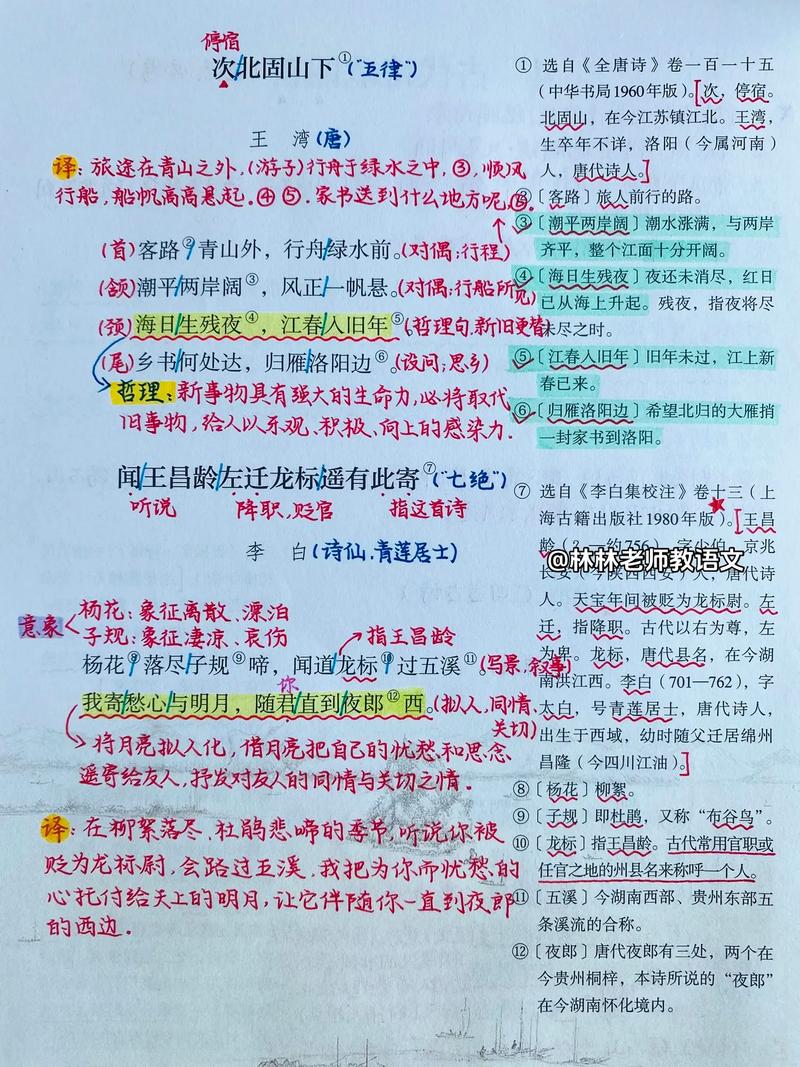 停宿
次北固山下①("五律")
王 湾(唐)
译:旅途在青山之外,(游子)行舟于绿水之中,③,顺风
行船,船帆高高悬起。④⑤.家书送到什么地方呢,⑥.
(首)客路②青山外,行舟绿水前。(对偶;行程)
(颔)潮平两岸阔③,风正一帆悬。(对偶;行船所见)
(颈)海日生残夜④,江春入旧年⑤(哲理句.新旧更替
(尾)乡书何处达,归雁洛阳边⑥。(设问;思乡)
哲理:新事物具有强大的生命力,必将取代
旧事物,给人以乐观、积极、向上的感染力.
闻王昌龄左迁龙标遥有此寄⑦("七绝")
听说 降职,贬官 指这首诗
李 白(诗仙.青莲居士)
意象
杨花:象征离散、漂泊
子规:象征凄凉、哀伤
指王昌龄
杨花⑧落尽子规⑨啼,闻道龙标⑩过五溪⑪。(写景,叙事)
你
我寄愁心与明月,随君直到夜郎⑫西。(拟人,同情、
关切)
将月亮拟人化,借月亮把自己的忧愁和思念
遥寄给友人,抒发对友人的同情与关切之情.
译:在柳絮落尽、杜鹃悲啼的季节,听说你被
贬为龙标尉,会路过五溪,我把为你而忧愁的
心托付给天上的明月,让它伴随你一直到夜郎
的西边.
① 选自《全唐诗》卷一百一十五
(中华书局1960年版)。[次,停宿。
北固山,在今江苏镇江北。王湾,
生卒年不详,洛阳(今属河南)
人,唐代诗人。]
②〔客路〕旅人前行的路。
③〔潮平两岸阔〕潮水涨满,与两岸
齐平,整个江面十分开阔。
④〔海日生残夜〕夜还未消尽,红日
已从海上升起。残夜,指夜将尽
未尽之时。
⑤〔江春入旧年〕旧年未过,江上新
春已来。
⑥〔归雁洛阳边〕希望北归的大雁捎
一封家书到洛阳。
⑦ 选自《李白集校注》卷十三(上
海古籍出版社1980年版)。[王昌
龄(?—约756),字少伯,京兆
@林林老师教语文
长安(今陕西西安)人,唐代诗
人。天宝年间被贬为龙标尉。左
迁,指降职。古代以右为尊,左
为卑。龙标,唐代县名,在今湖
南洪江西。李白(701—762),字
太白,号青莲居士,唐代诗人,
出生于西域,幼时随父迁居绵州
昌隆(今四川江油)。]
⑧〔杨花〕柳絮。
⑨〔子规〕即杜鹃,又称“布谷鸟”。
⑩〔龙标〕指王昌龄。古代常用官职或
任官之地的州县名来称呼一个人。
⑪〔五溪〕今湖南西部、贵州东部五
条溪流的合称。
⑫〔夜郎〕唐代夜郎有三处,两个在
今贵州桐梓,本诗所说的“夜郎”
在今湖南怀化境内。